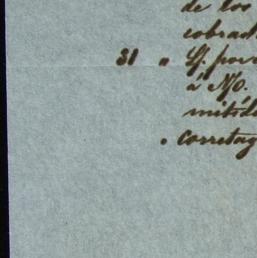 de los
cobrad
31 " G/. por
á N/o.
mitid
" corretag